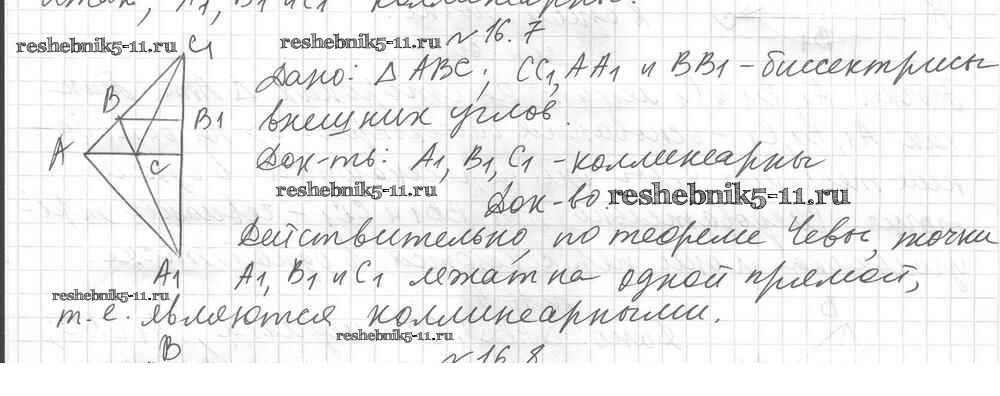 Итак, A1, B1 и C1 коллинеарны.
reshebnik5-11.ru
reshebnik5-11.ru
№16.7
C1
Дано: △ ABC; CC1, AA1 и BB1 - биссектрисы
B
B1
внешних углов.
A
C
Док-ть: A1, B1, C1 - коллинеарны
reshebnik5-11.ru
Док-во.
reshebnik5-11.ru
Действительно, по теореме Чевы, точки
A1
A1, B1 и C1 лежат на одной прямой,
reshebnik5-11.ru
т.е. являются коллинеарными.
reshebnik5-11.ru
B
№16.8